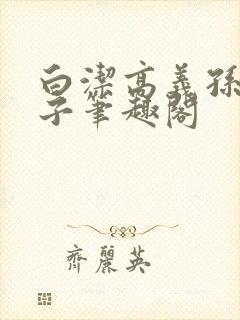 白潔高義孫
子筆趣閣
齊麗英